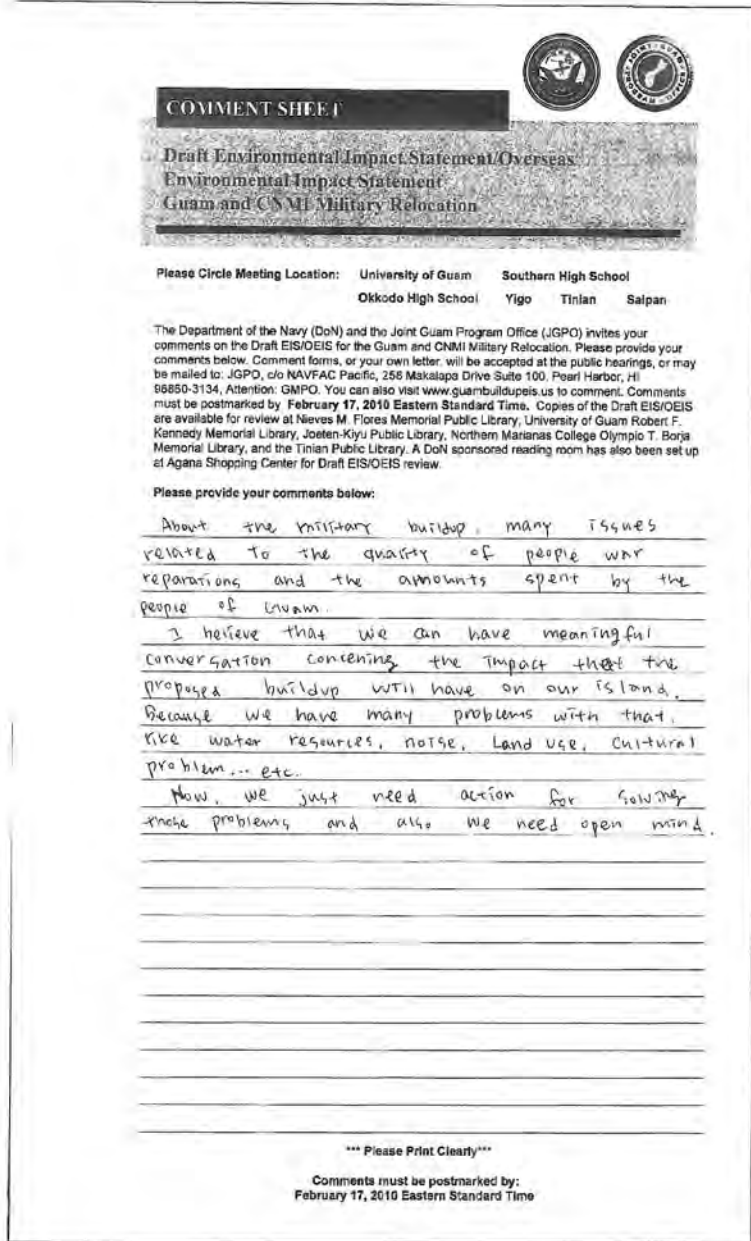 COMMENT SHEET
Draft Environmental Impact Statement/Overseas
Environmental Impact Statement
Guam and CNMI Military Relocation
Please Circle Meeting Location: University of Guam Southern High School
Okkodo High School Yigo Tinian Saipan
The Department of the Navy (DoN) and the Joint Guam Program Office (JGPO) invites your
comments on the Draft EIS/OEIS for the Guam and CNMI Military Relocation. Please provide your
comments below. Comment forms, or your own letter, will be accepted at the public hearings, or may
be mailed to: JGPO, c/o NAVFAC Pacific, 258 Makalapa Drive Suite 100, Pearl Harbor, HI
96860-3134, Attention: GMPO. You can also visit www.guambuildupeis.us to comment. Comments
must be postmarked by February 17, 2010 Eastern Standard Time. Copies of the Draft EIS/OEIS
are available for review at Nieves M. Flores Memorial Public Library, University of Guam Robert F.
Kennedy Memorial Library, Joeten-Kiyu Public Library, Northern Marianas College Olympio T. Borja
Memorial Library, and the Tinian Public Library. A DoN sponsored reading room has also been set up
at Agana Shopping Center for Draft EIS/OEIS review.
Please provide your comments below:
About the military buildup, many issues
related to the quality of people war
reparations and the amounts spent by the
people of Guam.
I believe that we can have meaningful
conversation concening the impact that the
proposed buildup will have on our island.
Because we have many problems with that.
like water resources, noise, Land use, cultural
problem... etc.
Now, we just need action for solving
those problems and also we need open mind.
*** Please Print Clearly***
Comments must be postmarked by:
February 17, 2010 Eastern Standard Time